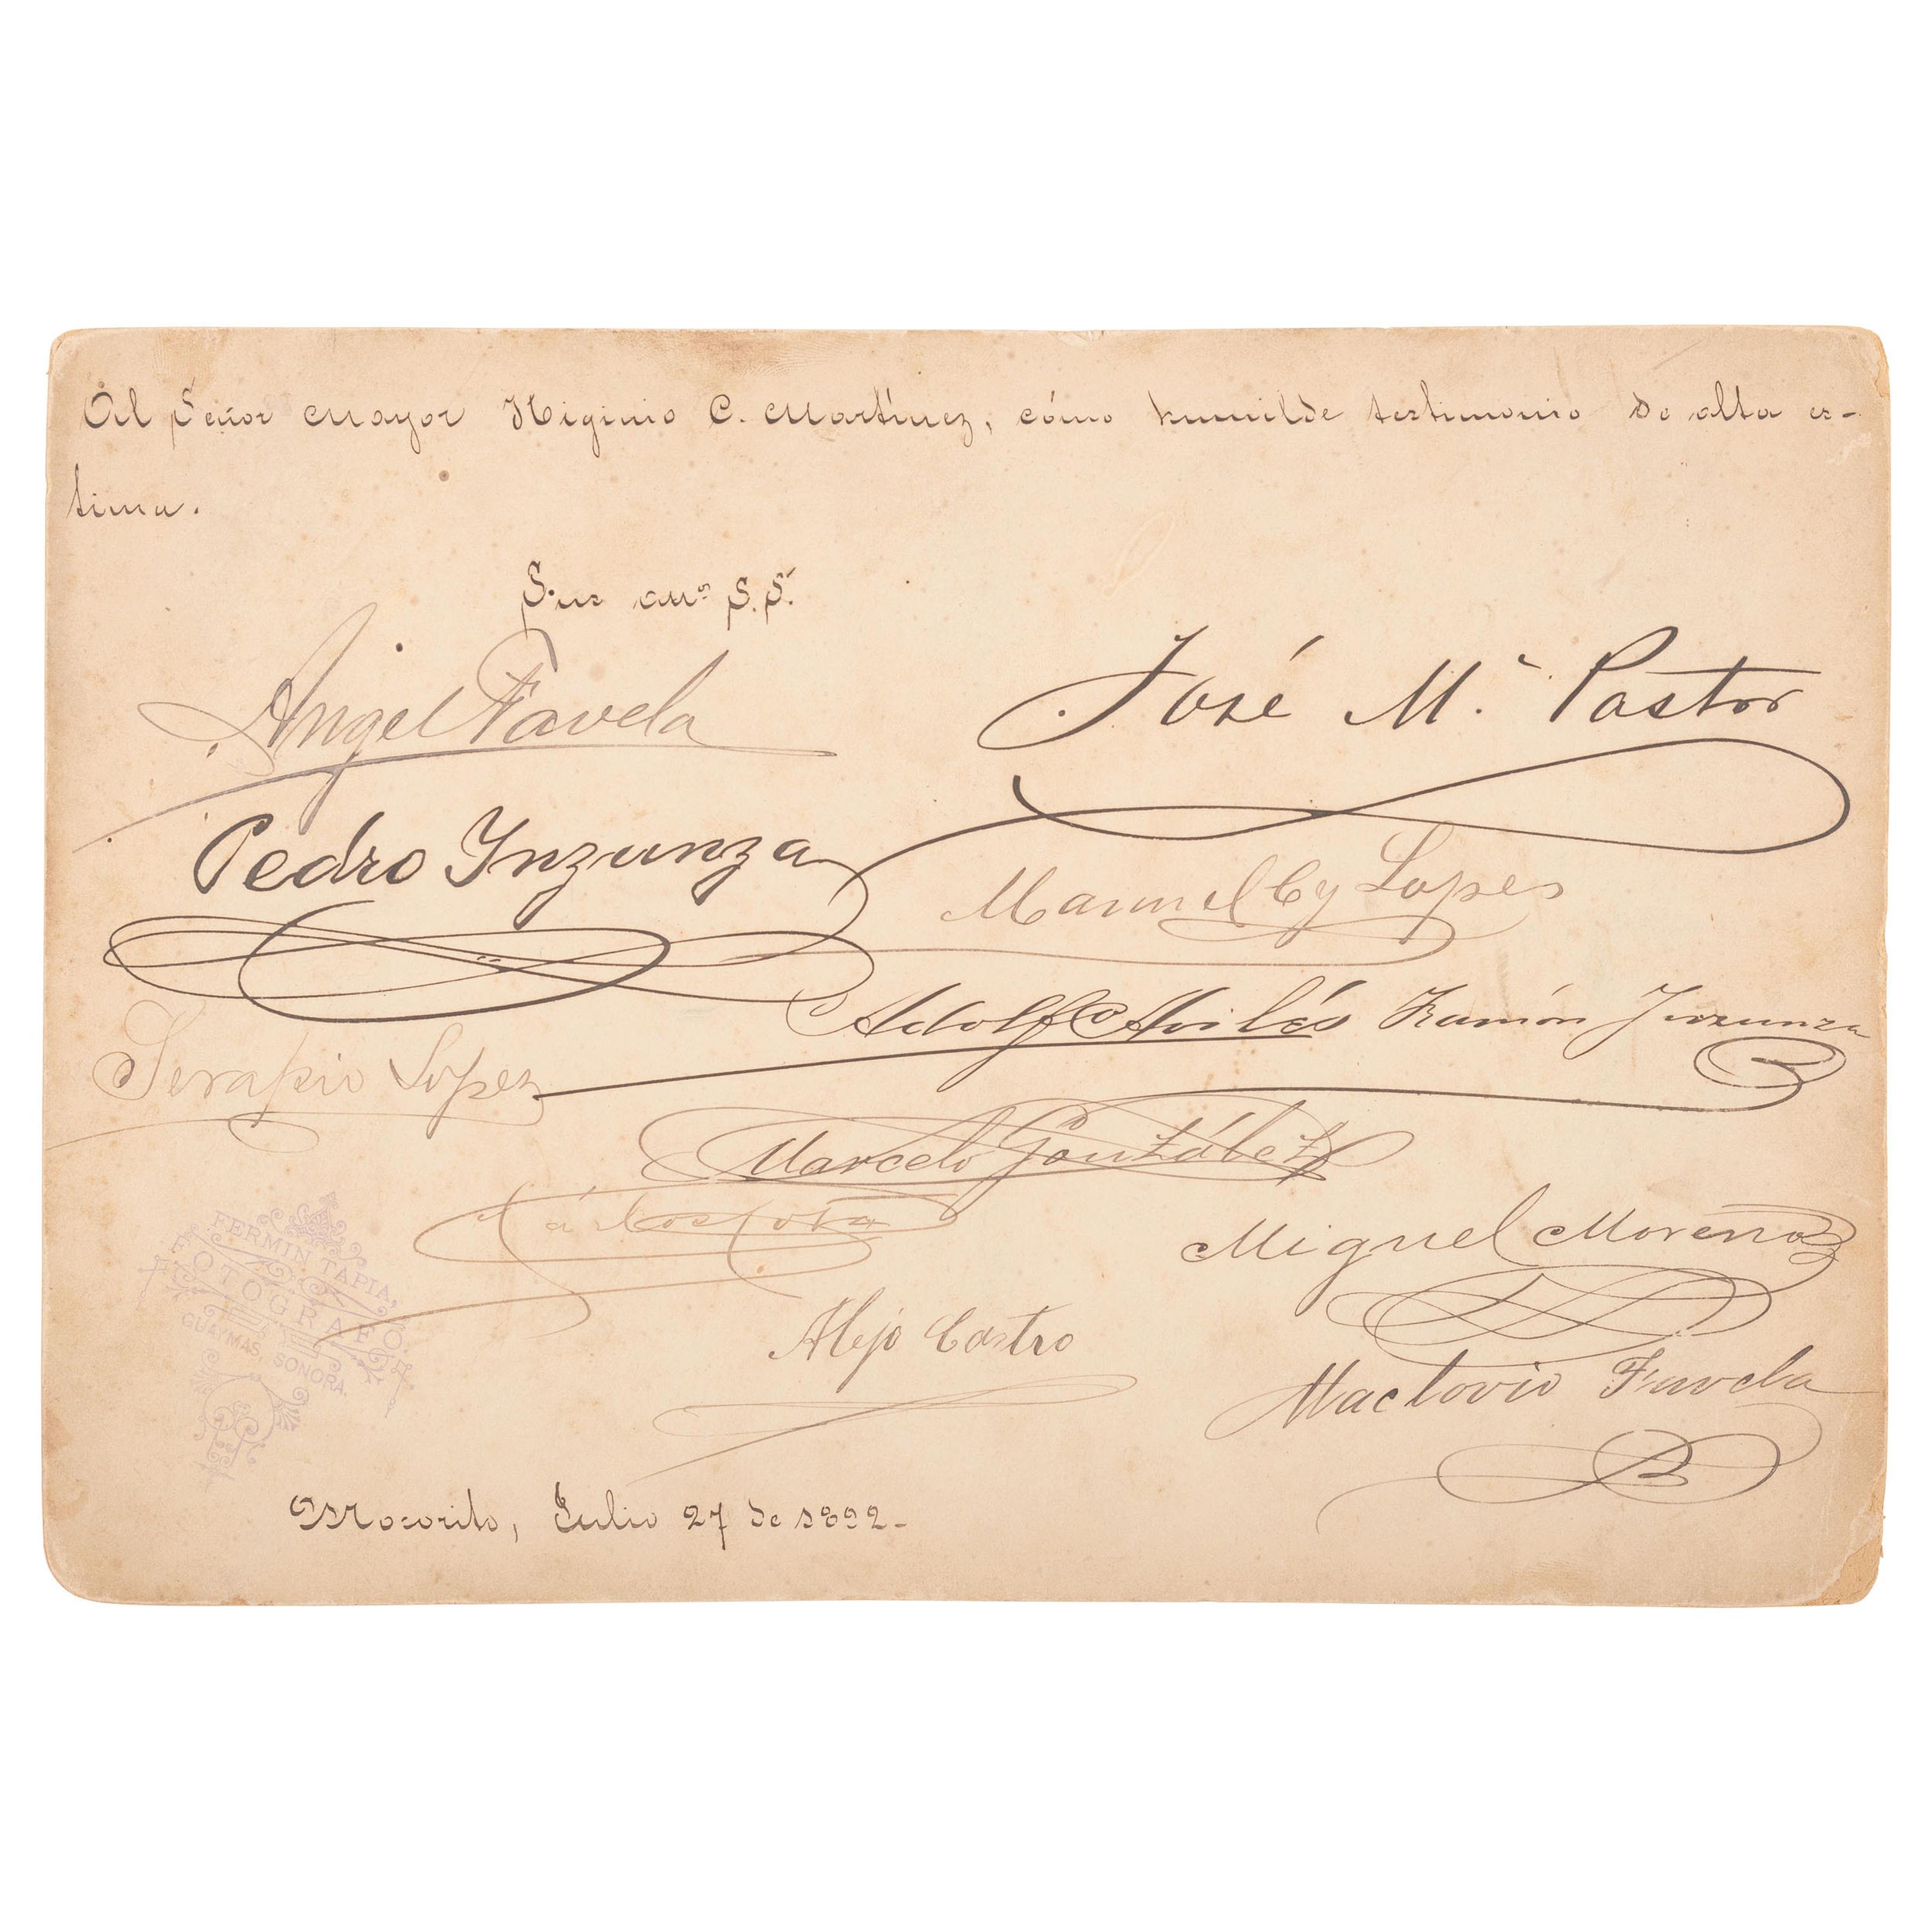 Al Señor Mayor Higinio C. Martínez, cómo humilde testimonio de alta es-
tima.
Sus am.os S.S.
Angel Favela
José M.a Pastor
Pedro Ynzunza
Manuel Cy Lopes
Adolfo Avilés
Ramón Inzunza
Serapio Lopez
Marcelo González
Cárlos Sota
Miguel Moreno
Alejo Castro
Mactovio Favela
FERMIN TAPIA,
FOTOGRAFO.
GUAYMAS, SONORA.
Mocorito, Julio 27 de 1892-